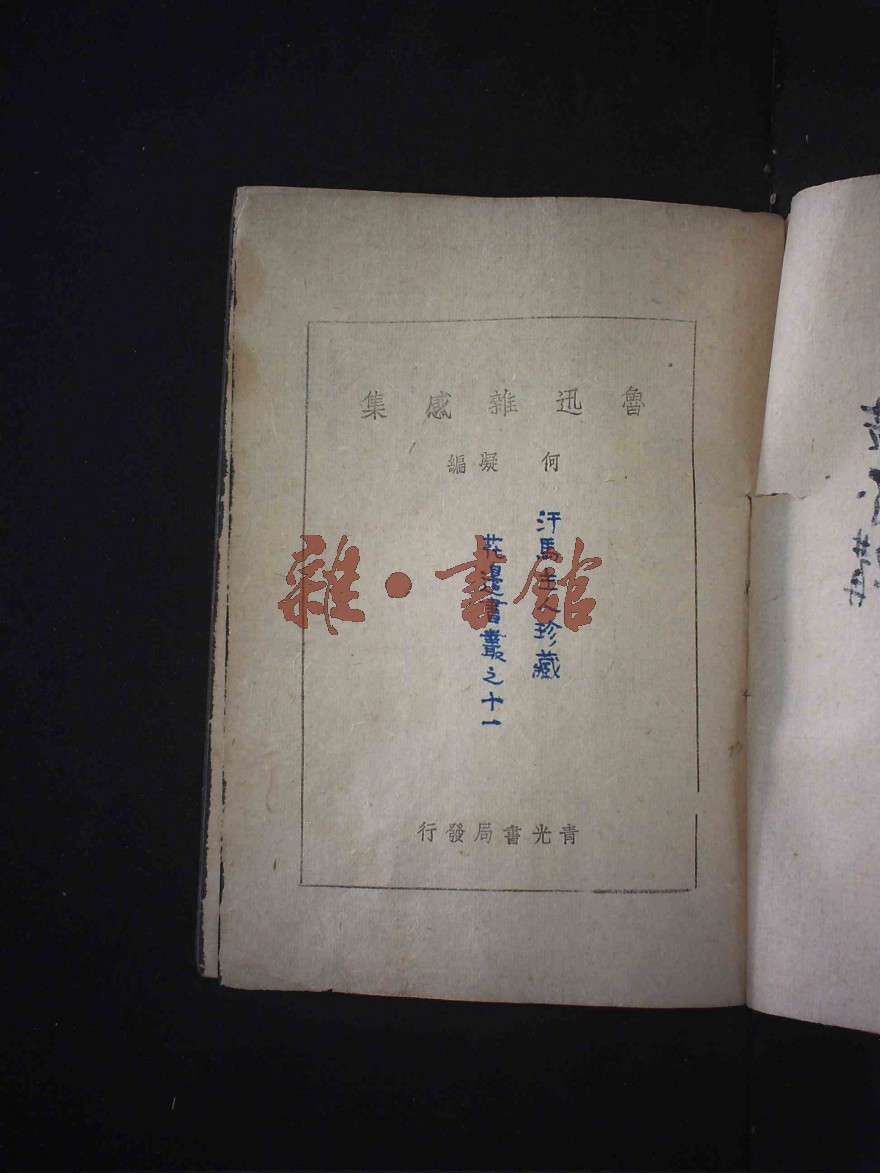 魯迅雜感集
何凝編
汗馬主人珍藏
花邊書叢之十一
雜·書館
青光書局發行